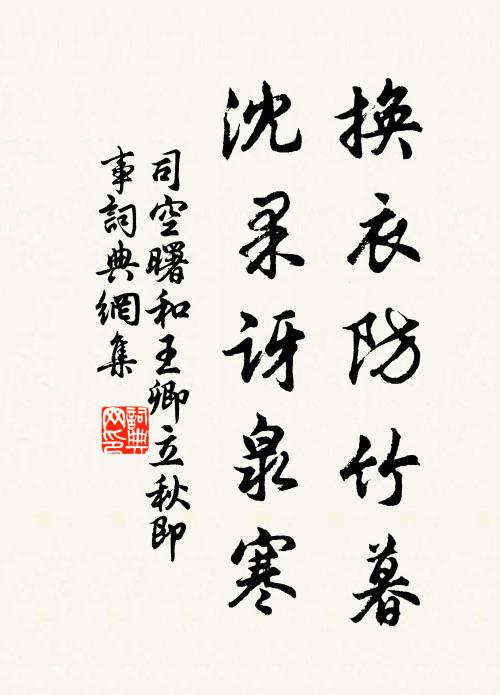 換衣防竹暮
沈果訝泉寒
司空曙和王卿立秋即
事詞典網集
詞典
网印